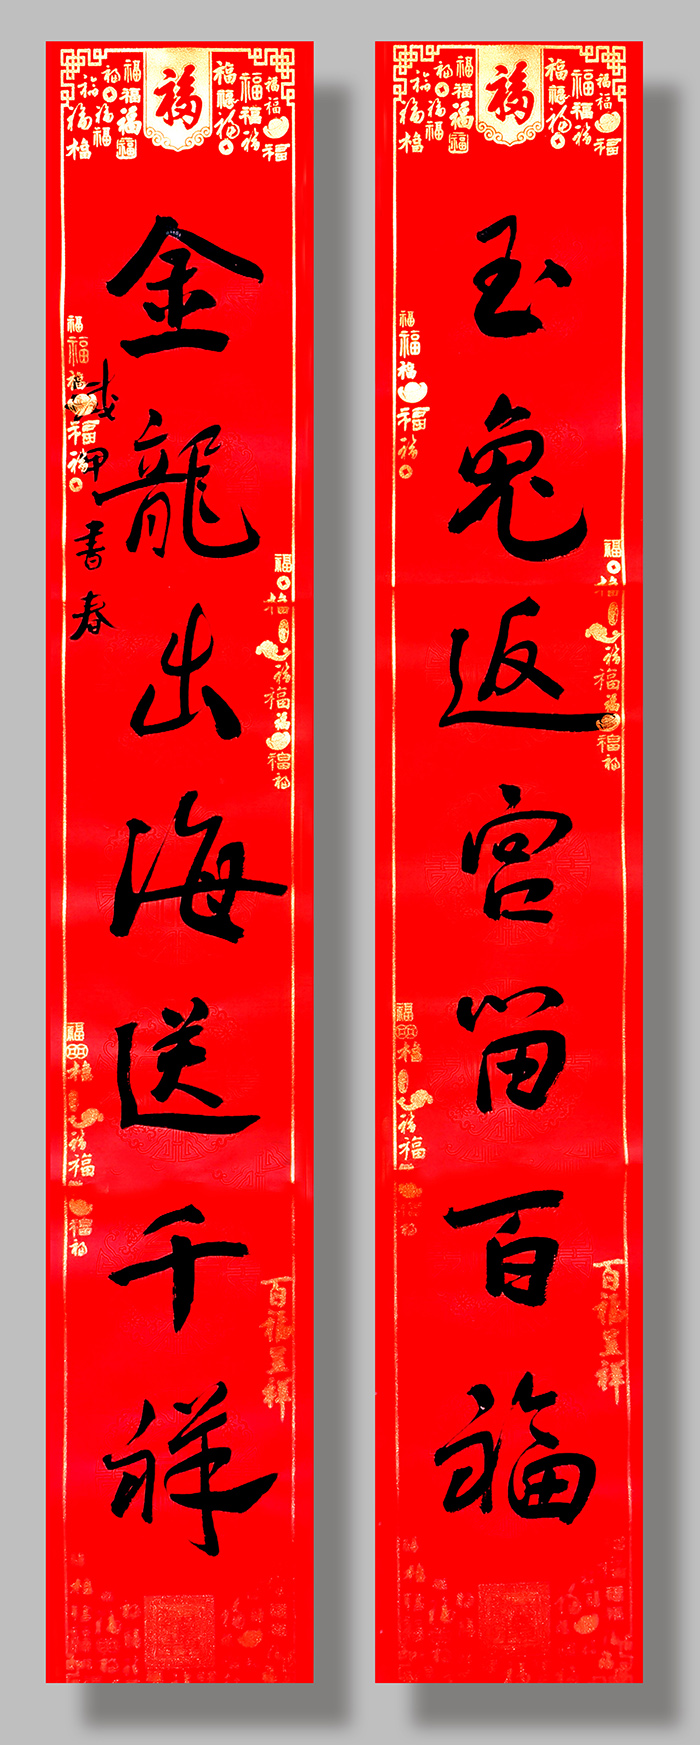 玉兔返宫留百福
金龍出海送千祥
書春
福
福
百福呈祥
百福呈祥